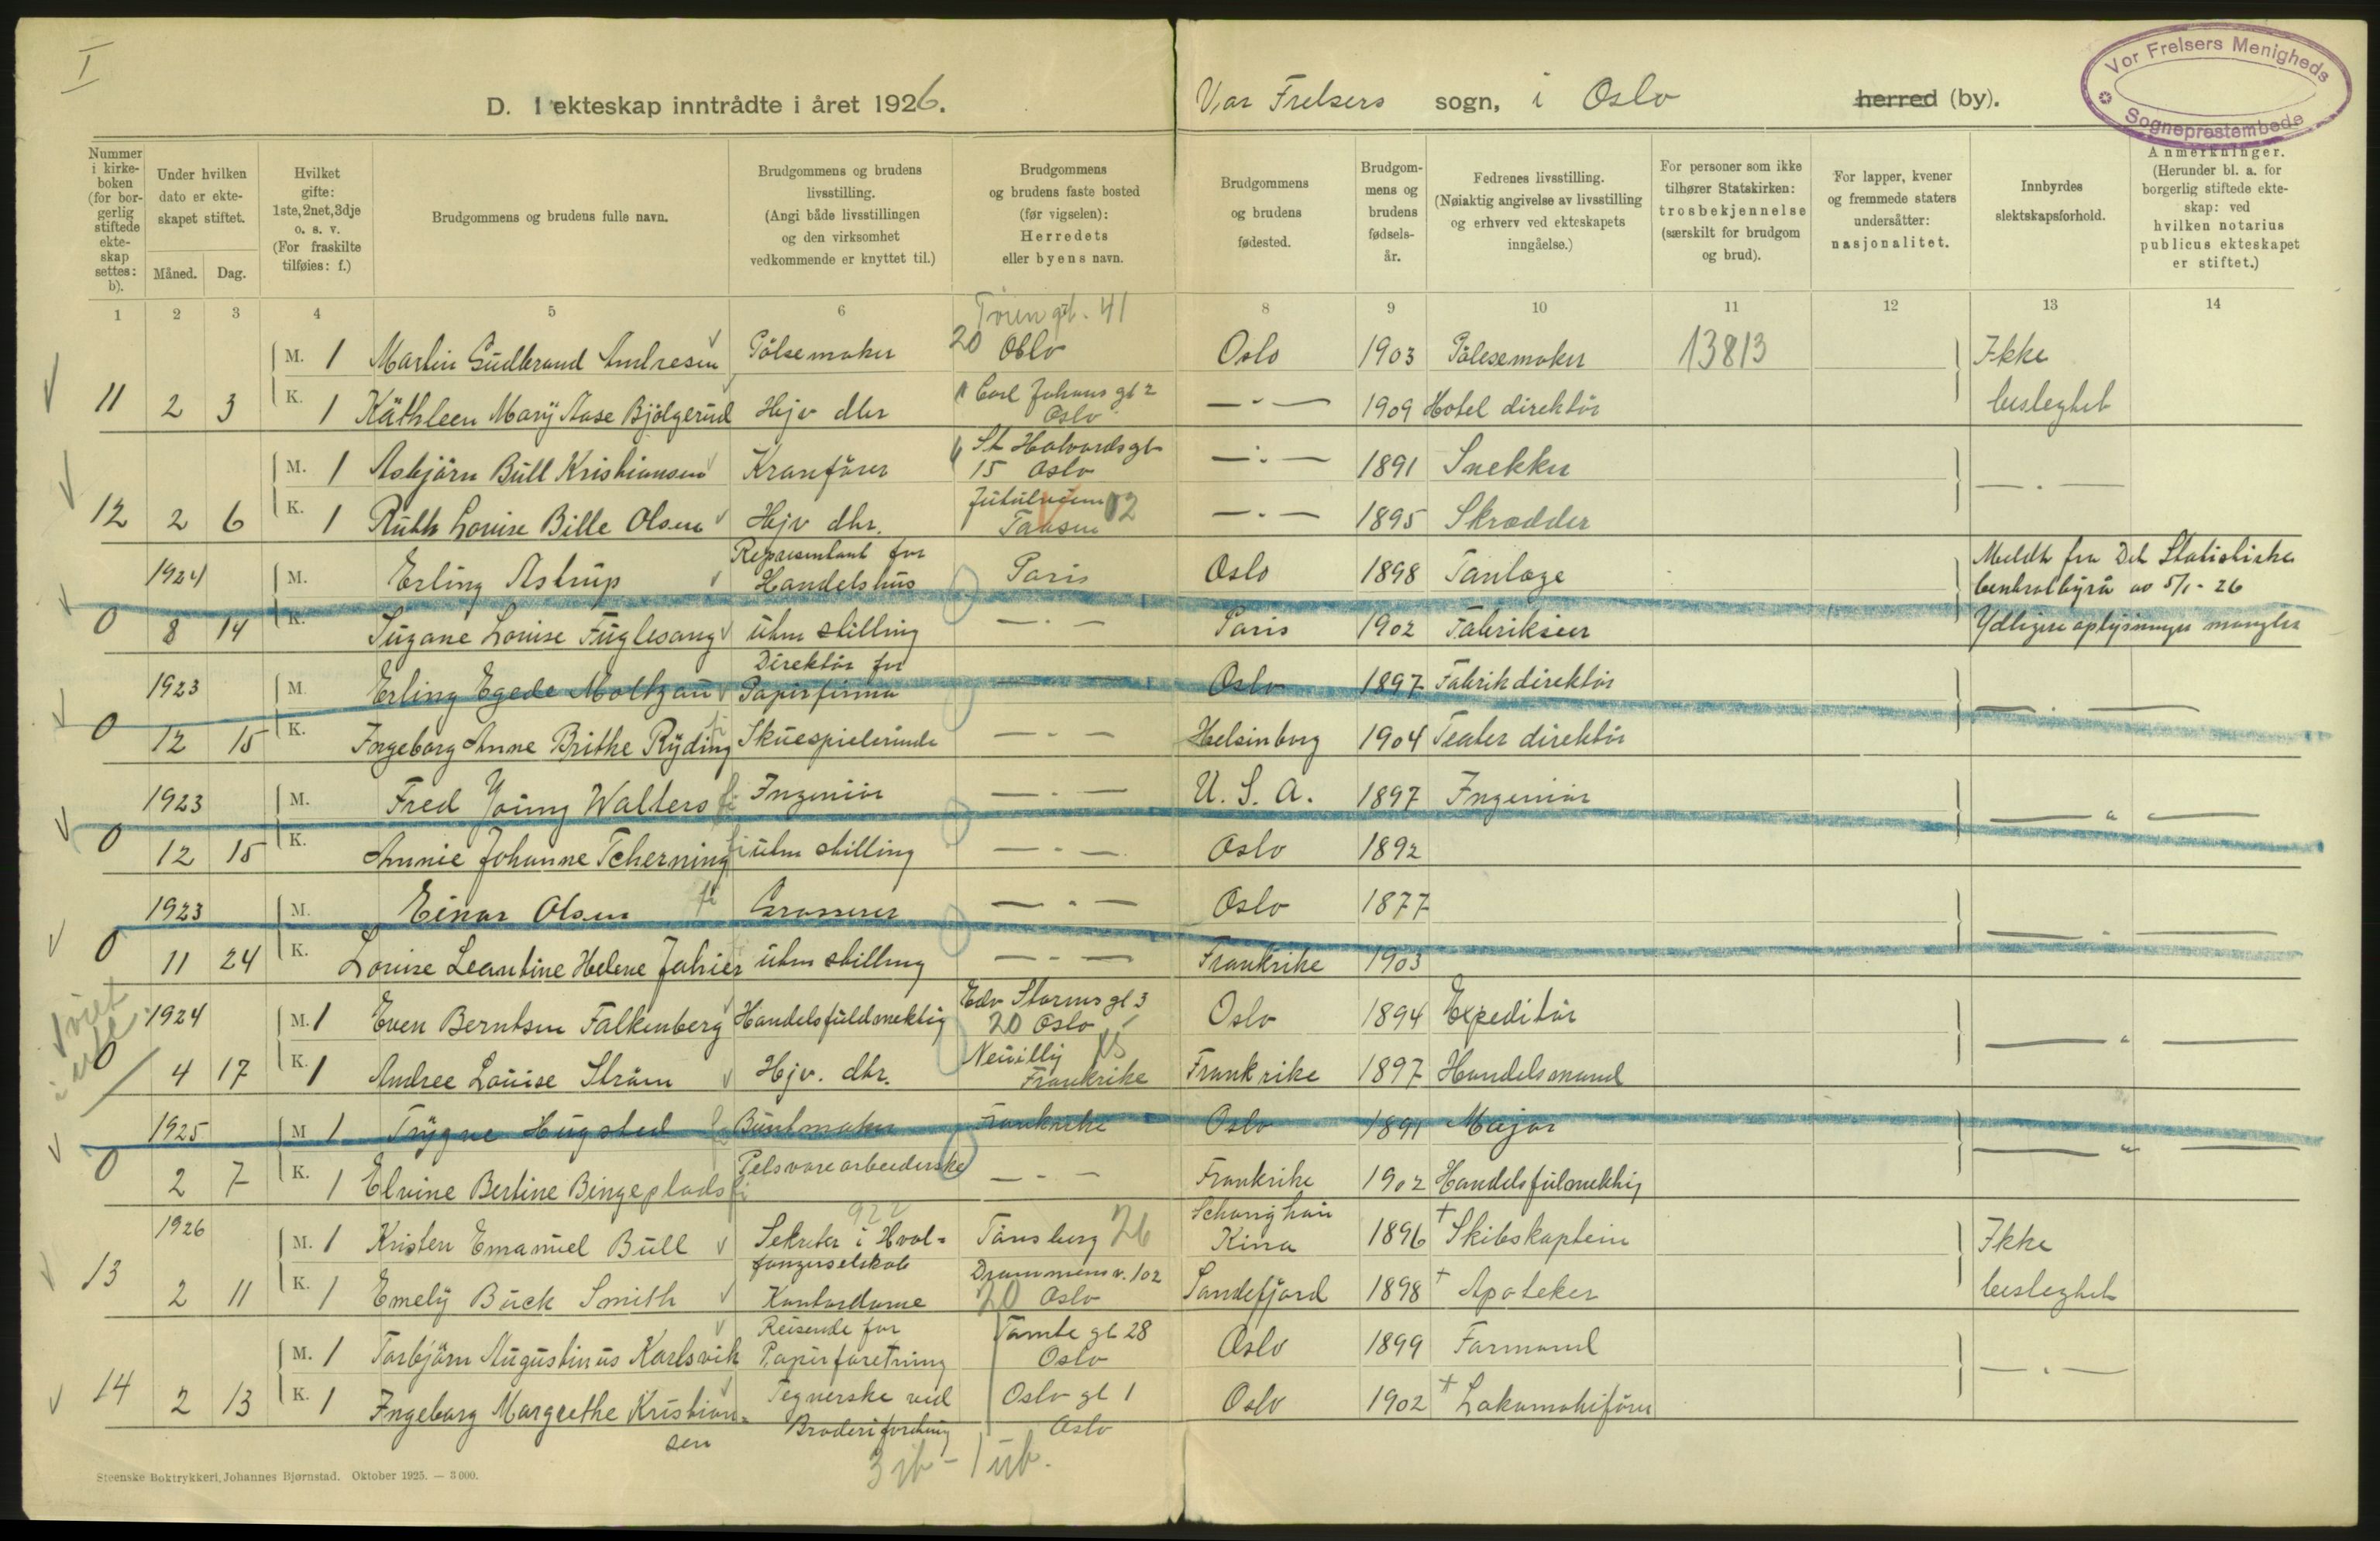 I
D. I ekteskap inntrådte i året 1926.
Vår Frelsers sogn, i Oslo herred (by).
Vor Frelsers Menigheds
Sogneprestembede
Nummer i kirke-boken (for bor-gerlig stiftede ekte-skap settes: b).
Under hvilken dato er ekte-skapet stiftet.
Måned. Dag.
Hvilket gifte: 1ste, 2net, 3dje o. s. v. (For fraskilte tilføies: f.)
Brudgommens og brudens fulle navn.
Brudgommens og brudens livsstilling. (Angi både livsstillingen og den virksomhet vedkommende er knyttet til.)
Brudgommens og brudens faste bosted (før vigselen): Herredets eller byens navn.
Brudgommens og brudens fødested.
Brudgom-mens og brudens fødsels-år.
Fedrenes livsstilling. (Nøiaktig angivelse av livsstilling og erhverv ved ekteskapets inngåelse.)
For personer som ikke tilhører Statskirken: trosbekjennelse (særskilt for brudgom og brud).
For lapper, kvener og fremmede staters undersåtter: nasjonalitet.
Innbyrdes slektskapsforhold.
Anmerkninger. (Herunder bl. a. for borgerlig stiftede ekte-skap: ved hvilken notarius publicus ekteskapet er stiftet.)
1 2 3 4 5 6 7 8 9 10 11 12 13 14
Tøien gt. 41
M. 1 Martin Gudbrand Andresen Pölsemaker 20 Oslo Oslo 1903 Pölsemaker 13813 Ikke
11 2 3 K. 1 Käthleen Marÿ Aase Bjölgerud Hjv dtr Carl Johans gt 2 Oslo — " — 1909 Hotel direktör beslegtet
M. 1 Asbjörn Bull Kristiansen Kranförer St Halvards gt 15 Oslo — " — 1891 Snekker — " —
12 2 6 K. 1 Ruth Louise Bille Olsen Hjv dtr. Jutulveien 02 Taasen — " — 1895 Skrædder
1924 M. Erling Astrup Representant for Handelshus Paris Oslo 1898 Tanlæge Meldt fra Det Statistiske Centralbyrå av 5/1-26
0 8 14 K. Suzane Louise Fuglesang uten stilling — " — Paris 1902 Fabrikeier Ydligere oplysninger mangler
1923 M. Erling Egede Moltzau Direktör for Papirfirma — " — Oslo 1897 Fabrikdirektör — " —
0 12 15 K. Ingeborg Anne Brithe Rÿding Skuespillerinde — " — Helsinborg 1904 Teater direktör
1923 M. Fred Young Walters Ingeniör — " — U. S. A. 1897 Ingeniör — " —
0 12 15 K. Annie Johanne Tcherning uten stilling — " — Oslo 1892
1923 M. Einar Olsen Grosserer — " — Oslo 1877 — " —
0 11 24 K. Louise Leantine Helene Jahier uten stilling — " — Frankrike 1903
1924 M. 1 Even Berntsen Falkenberg Handelsfuldmektig Edv Storms gt 3 20 Oslo Oslo 1894 Expeditör — " —
0 4 17 K. 1 Andree Louise Ström Hjv. dtr. Neuilly Frankrike Frankrike 1897 Handelsmand
1925 M 1 Trÿgve Hugsted Buntmaker Frankrike Oslo 1891 Major — " —
0 2 7 K. 1 Elvine Bertine Bingeplads Pelsvarearbeiderske — " — Frankrike 1902 Handelsfulmektig
1926 M. 1 Kristen Emanuel Bull Sekretær i Hval-fangerselskab Tönsberg 26 Schanghai Kina 1896 + Skibskaptein Ikke
13 2 11 K. 1 Emelÿ Buck Smith Kontordame Drammensv. 102 20 Oslo Sandefjord 1898 + Apoteker beslegtet
M. 1 Torbjörn Augustinus Karlsvik Reisende for Papirforetning Tomte gt 28 Oslo Oslo 1899 Formand — " —
14 2 13 K. 1 Ingeborg Margrethe Kristian-sen Tegnerske ved Broderiforetning Oslo gt 1 Oslo Oslo 1902 + Lokomotivförer
Steenske Boktrykkeri, Johannes Bjørnstad. Oktober 1925. — 3 000.